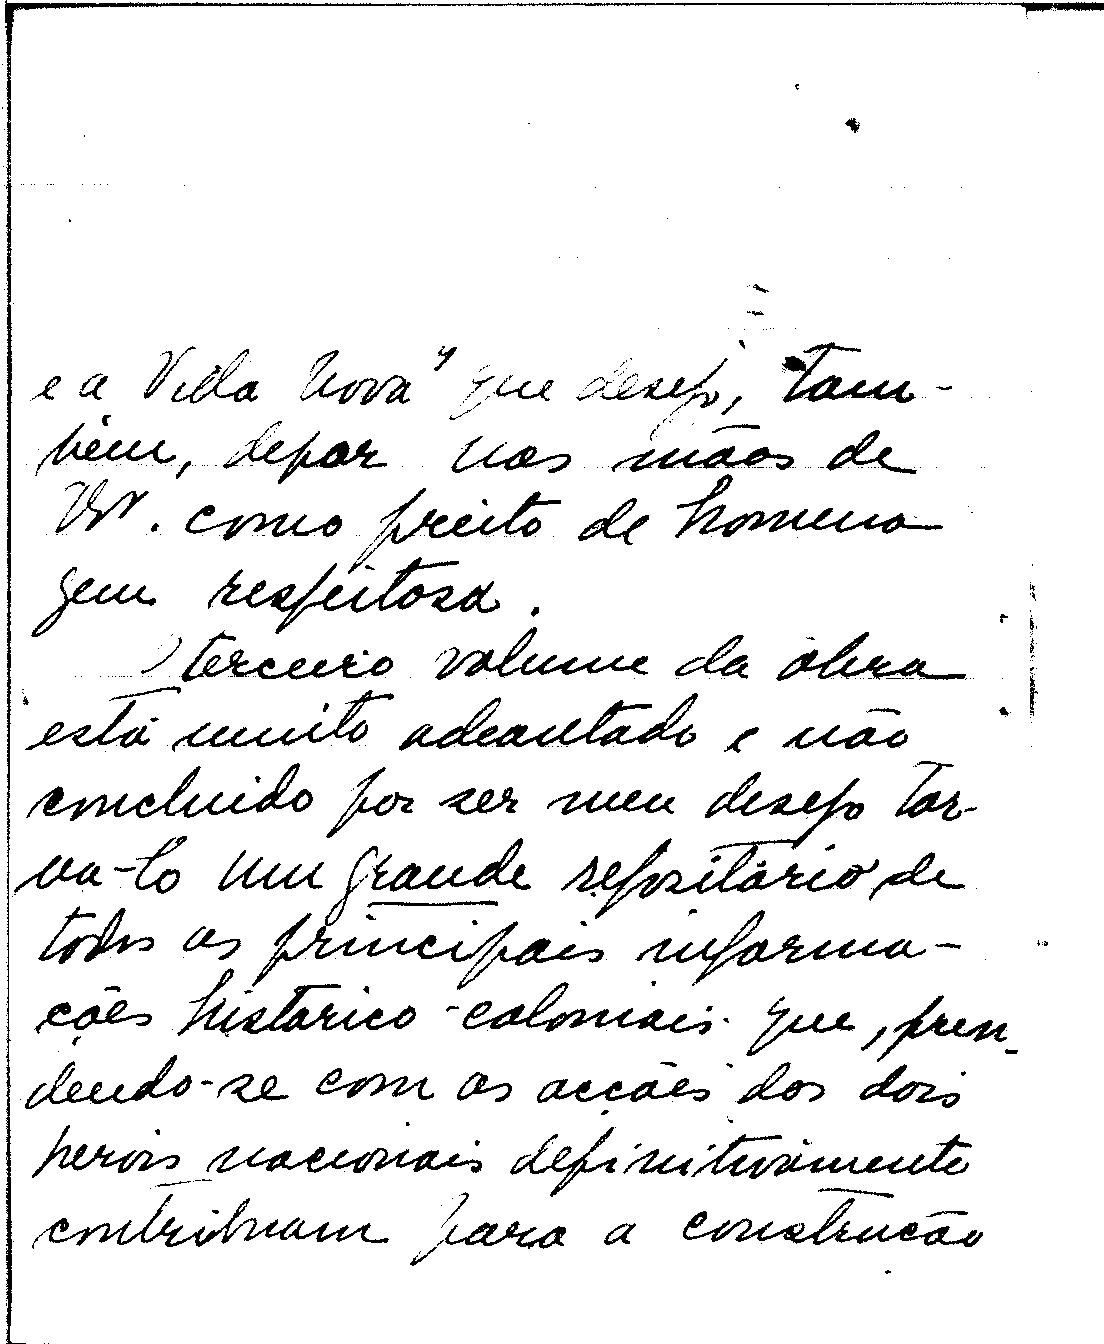 e a Vida Nova" que desejo, tam-
bém, depor nas mãos de
como preito de homena
gem respeitosa.
O terceiro volume da obra
está muito adeantado e não
concluido por ser meu desejo tor-
na-lo um grande repositário de
todas as principais informa-
ções histórico-coloniais que, pren-
dendo-se com as acções dos dois
herois nacionais definitivamente
contribuam para a construcão